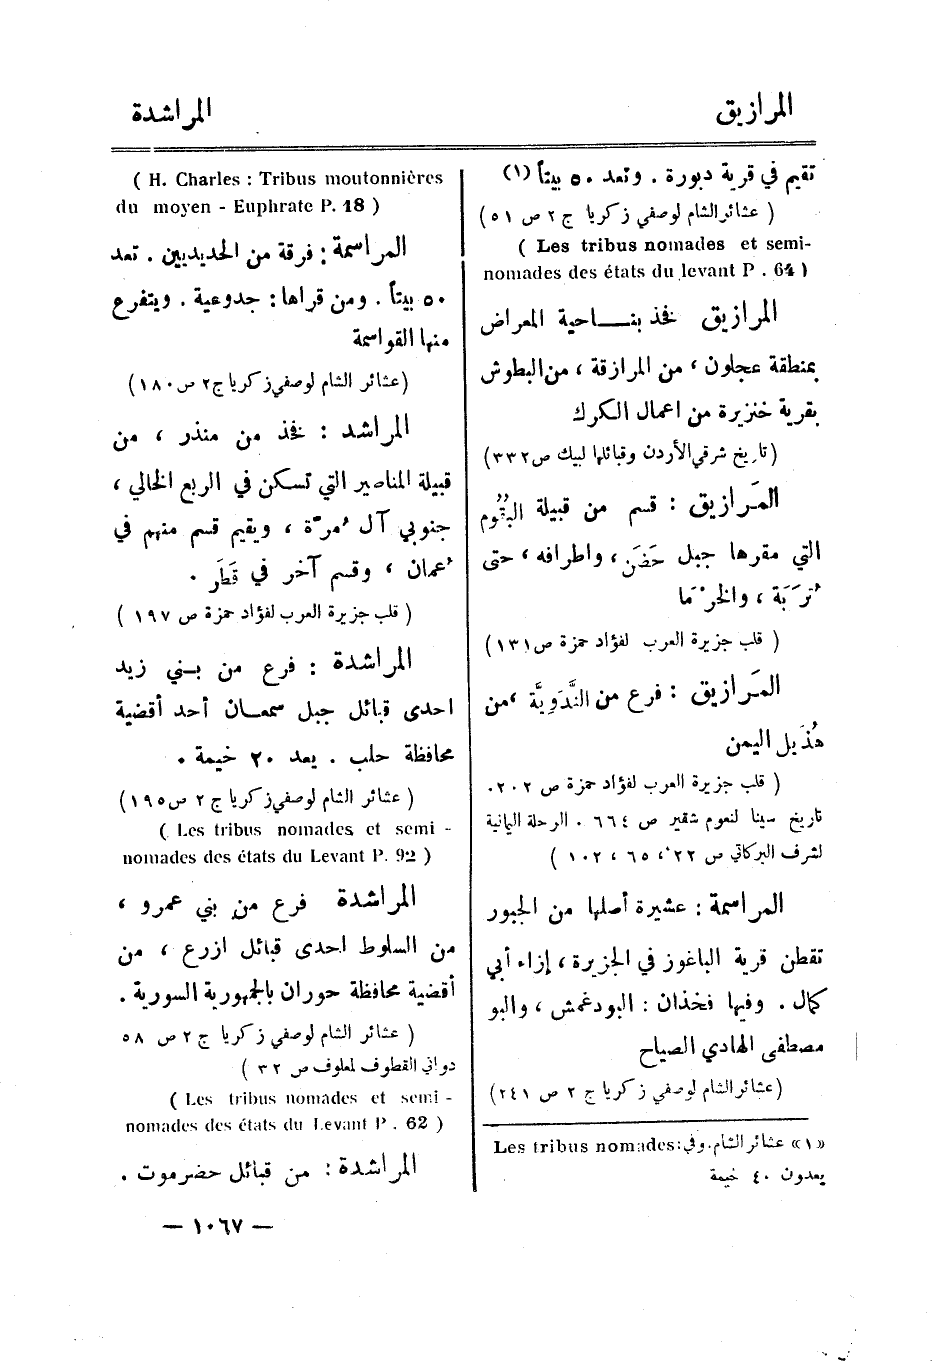 المرازيق
المراشدة
تقيم في قرية دبورة . وتعد ٥٠ بيتاً (١)
( عشائر الشام لوصفي زكريا ج ٢ ص ٥١ )
( Les tribus nomades et semi-
nomades des états du levant P . 64 )
المرازيق فخذ بناحية المعراض
بمنطقة عجلون ، من المرازقة ، من البطوش
بقرية خنزيرة من اعمال الكرك
( تاريخ شرقي الأردن وقبائلها لبيك ص ٣٣٢ )
المَرازيق : قسم من قبيلة البُقُوم
التي مقرها جبل حَضَن ، واطرافه ، حتى
تُرَبَة ، والخرْمَا
( قلب جزيرة العرب لفؤاد حمزة ص ١٣١ )
المَرازيق : فرع من النَّدَوِيَّة ، من
هُذَيل اليمن
( قلب جزيرة العرب لفؤاد حمزة ص ٢٠٢ .
تاريخ سينا لنعوم شقير ص ٦٦٤ . الرحلة اليمانية
لشرف البركاتي ص ٢٢ ، ٦٥ ، ١٠٢ )
المراسمة : عشيرة أصلها من الجبور
تقطن قرية الباغوز في الجزيرة ، إزاء أبي
كمال . وفيها فخذان : البودغمش ، والبو
مصطفى الهادي الصياح
( عشائر الشام لوصفي زكريا ج ٢ ص ٢٤١ )
«١» عشائر الشام . وفي : Les tribus nomades
يعدون ٤٠ خيمة
( H. Charles : Tribus moutonnières
du moyen - Euphrate P. 18 )
المراسمة : فرقة من الحديديين . تعد
٥٠ بيتاً . ومن قراها : جدوعية . ويتفرع
منها القواسمة
( عشائر الشام لوصفي زكريا ج ٢ ص ١٨٠ )
المراشد : فخذ من منذر ، من
قبيلة المناصير التي تسكن في الربع الخالي ،
جنوبي آل مُرّة ، ويقيم قسم منهم في
عُمان ، وقسم آخر في قَطَر .
( قلب جزيرة العرب لفؤاد حمزة ص ١٩٧ )
المراشدة : فرع من بني زيد
احدى قبائل جبل سمعان أحد أقضية
محافظة حلب . يعد ٢٠ خيمة .
( عشائر الشام لوصفي زكريا ج ٢ ص ١٩٥ )
( Les tribus nomades et semi -
nomades des états du Levant P. 92 )
المراشدة فرع من بني عمرو ،
من السلوط احدى قبائل ازرع ، من
أقضية محافظة حوران بالجمهورية السورية .
( عشائر الشام لوصفي زكريا ج ٢ ص ٥٨
دواني القطوف لمعلوف ص ٣٢ )
( Les tribus nomades et semi -
nomades des états du Levant P . 62 )
المراشدة : من قبائل حضرموت .
— ١٠٦٧ —